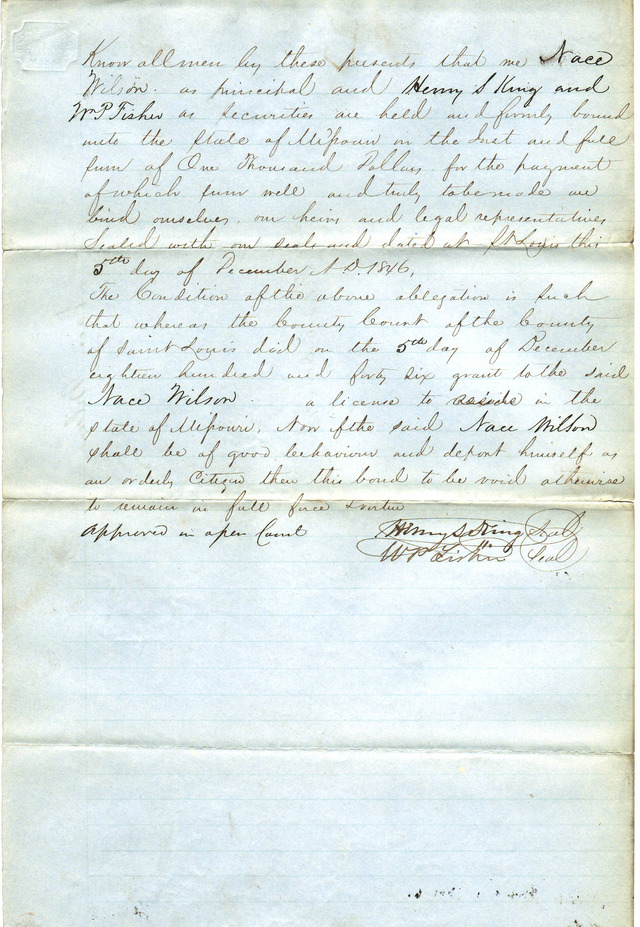 Know all men by these presents that we Nace
Wilson. as principal and Henry S King and
Wm P Fisher as securities are held and firmly bound
unto the State of Missouri in the Just and full
sum of One Thousand Dollars for the payment
of which sum well and truly to be made we
bind ourselves, our heirs and legal representatives
Sealed with our seals and dated at St Louis this
5th day of December A.D. 1846.
The Condition of the above obligation is such
that whereas the County Court of the County
of Saint Louis did on the 5th day of December
eighteen hundred and forty six grant to the said
Nace Wilson. a license to reside in the
State of Missouri, Now if the said Nace Wilson
shall be of good behaviour and deport himself as
an orderly Citizen then this bond to be void otherwise
to remain in full force & virtue
Approved in open Court Henry S King Seal
Wm P Fisher Seal